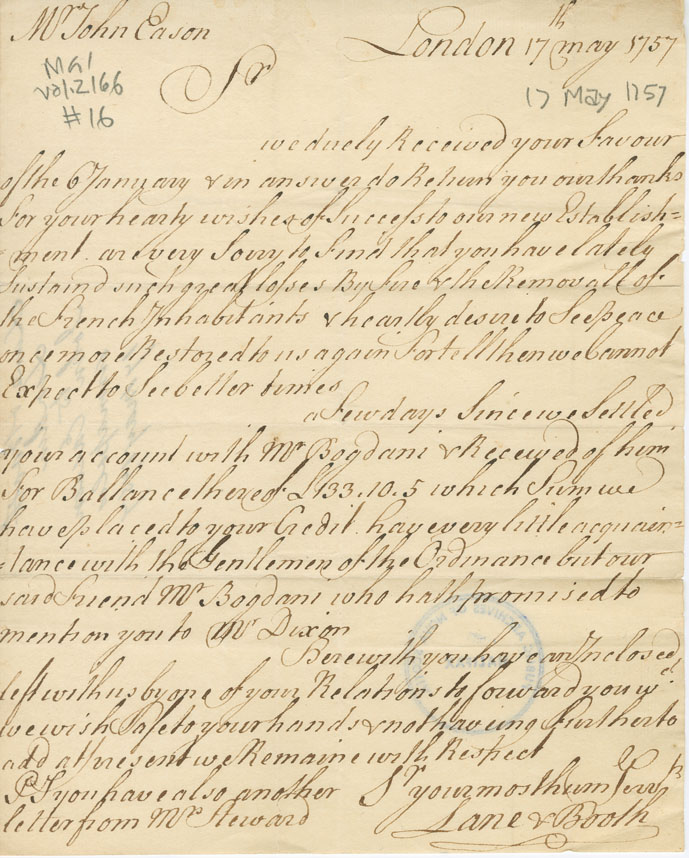 Mr John Eason
London 17th may 1757
MG1
vol. 2166
#16
Sr
17 May 1757
we duely Received your Favour
of the 6 January & in answer do Return you our thanks
For your hearty wishes of Success to our new Establish=
=ment are very Sorry to Find that you have lately
Sustaind such great losses By Fire & the Removall of
the French Inhabitants & heartly desire to See peace
once more Restored to us again For tell then we Cannot
Expect to See better times
a Few days Since we Settled
your account with Mr Bogdani & Received of him
For Ballance thereof £133.10.5 which Sum we
have placed to your Credit have very little acquain=
=tance with the Gentlemen of the Ordinance but our
said Friend Mr Bogdani who hath promised to
mention you to Mr Dixon
Herewith you have an Inclosed
left with us by one of your Relations to forward you wch
we wish Safe to your hands & not having Further to
add at present we Remaine with Respect
PS you have also another
letter from Mrs Steward
Sr your most hum Serv
Lane & Booth